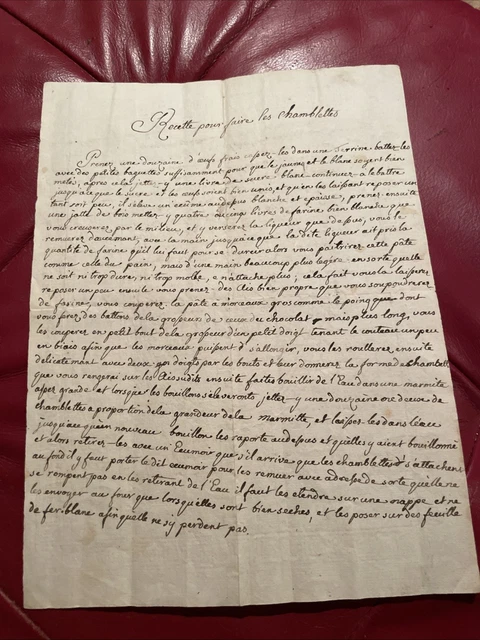 Recette pour faire les Chamblettes
Prenez une douzaine d'œuf frais cassez-les dans une terrine battez-les
avec des petites baguettes suffisamment pour que le jaune et le blanc soyent bien
melés, après cela jettez-y une livre de sucre blanc continuez à le battre
jusqu'a ce que le sucre et les œufs soient bien unis et qu'en les laissant reposer un
tant soit peu, il s'éleve un ecume au dessus blanche et epaisse, prenez ensuite
une jatte de bois mettez-y quatre ou cinq livres de farine bien blanche que
vous creuserez par le milieu, et y verserez la liqueur que dessus, vous le
remuerez doucement, avec la main jusqu'a ce que la dite liqueur ait pris la
quantité de farine qu'il faut pour se durer alors vous paitrirez cette pâte
comme celle du pain, mais d'une main beaucoup plus légère en sorte quelle
ne soit ni trop dure, ni trop molle, e n'attache plus; cela fait vous la laisserez
reposer un peu ensuite vous prenez des ais bien propre que vous soupoudrerez
de farine, vous couperez la pâte à morceaux gros comme le poing que dont
vous ferez des battons de la grosseur de ceux de chocolat, mais plus long, vous
les couperez en petit bout de la grosseur d'un petit doigt tenant le couteau un peu
en biais afin que les morceaux puissent s'allonger, vous les roullerez ensuite
delicatement avec deux doigts par les bouts et leur donnerez la forme de chamblettes
que vous rangerai sur les Ais susdits ensuite faites bouillir de l'Eau dans une marmite
assez grande et lorsque les bouillons s'eleveronts jettez-y une douzaine ou deux de
chamblettes a proportion de la grandeur de la marmitte, et laissez-les dans l'eau
jusqu'a ce qu'un nouveau bouillon les raporte au dessus et qu'elles y aient bouillonné
et alors retirez-les avec un Ecumoir que s'il arriva que les chamblettes s'attachent
au fond il y faut porter le dit ecumoir pour les remuer avec adresse de sorte qu'elle ne
se rompent pas en les retirant de l'Eau il faut les etendre sur une nappe et ne
les envoyer au four que lorsqu'elles sont bien seches, et les poser sur des feuille
de fer-blanc afin qu'elle ne s'y perdent pas.